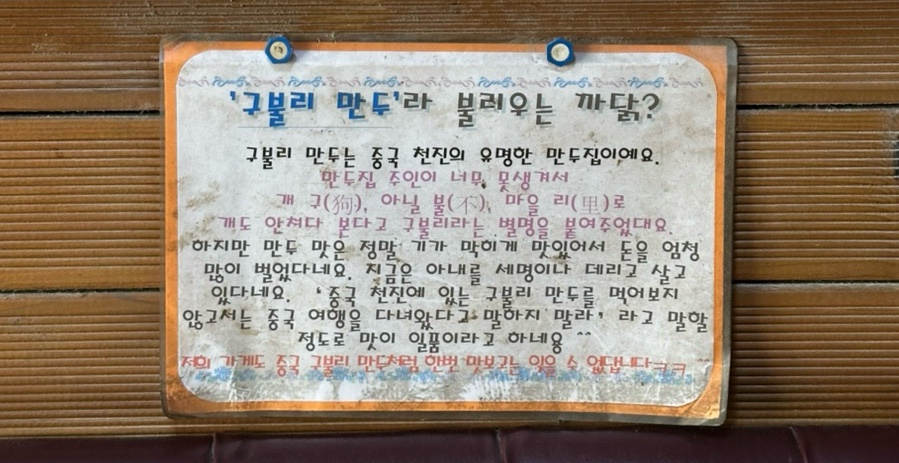 '구불리 만두'라 불리우는 까닭?
구불리 만두는 중국 천진의 유명한 만두집이예요.
만두집 주인이 너무 못생겨서
개 구(狗), 아닐 불(不), 마을 리(里)로
개도 안쳐다 본다고 구불리라는 별명을 붙여주었대요.
하지만 만두 맛은 정말 기가 막히게 맛있어서 돈을 엄청
많이 벌었다네요. 지금은 아내를 세명이나 데리고 살고
있다네요. '중국 천진에 있는 구불리 만두를 먹어보지
않고서는 중국 여행을 다녀왔다고 말하지 말라' 라고 말할
정도로 맛이 일품이라고 하네용 ^^
저희 가게도 중국 구불리 만두처럼 한번 맛보구는 잊을 수 없답니다ㅋㅋ ^^